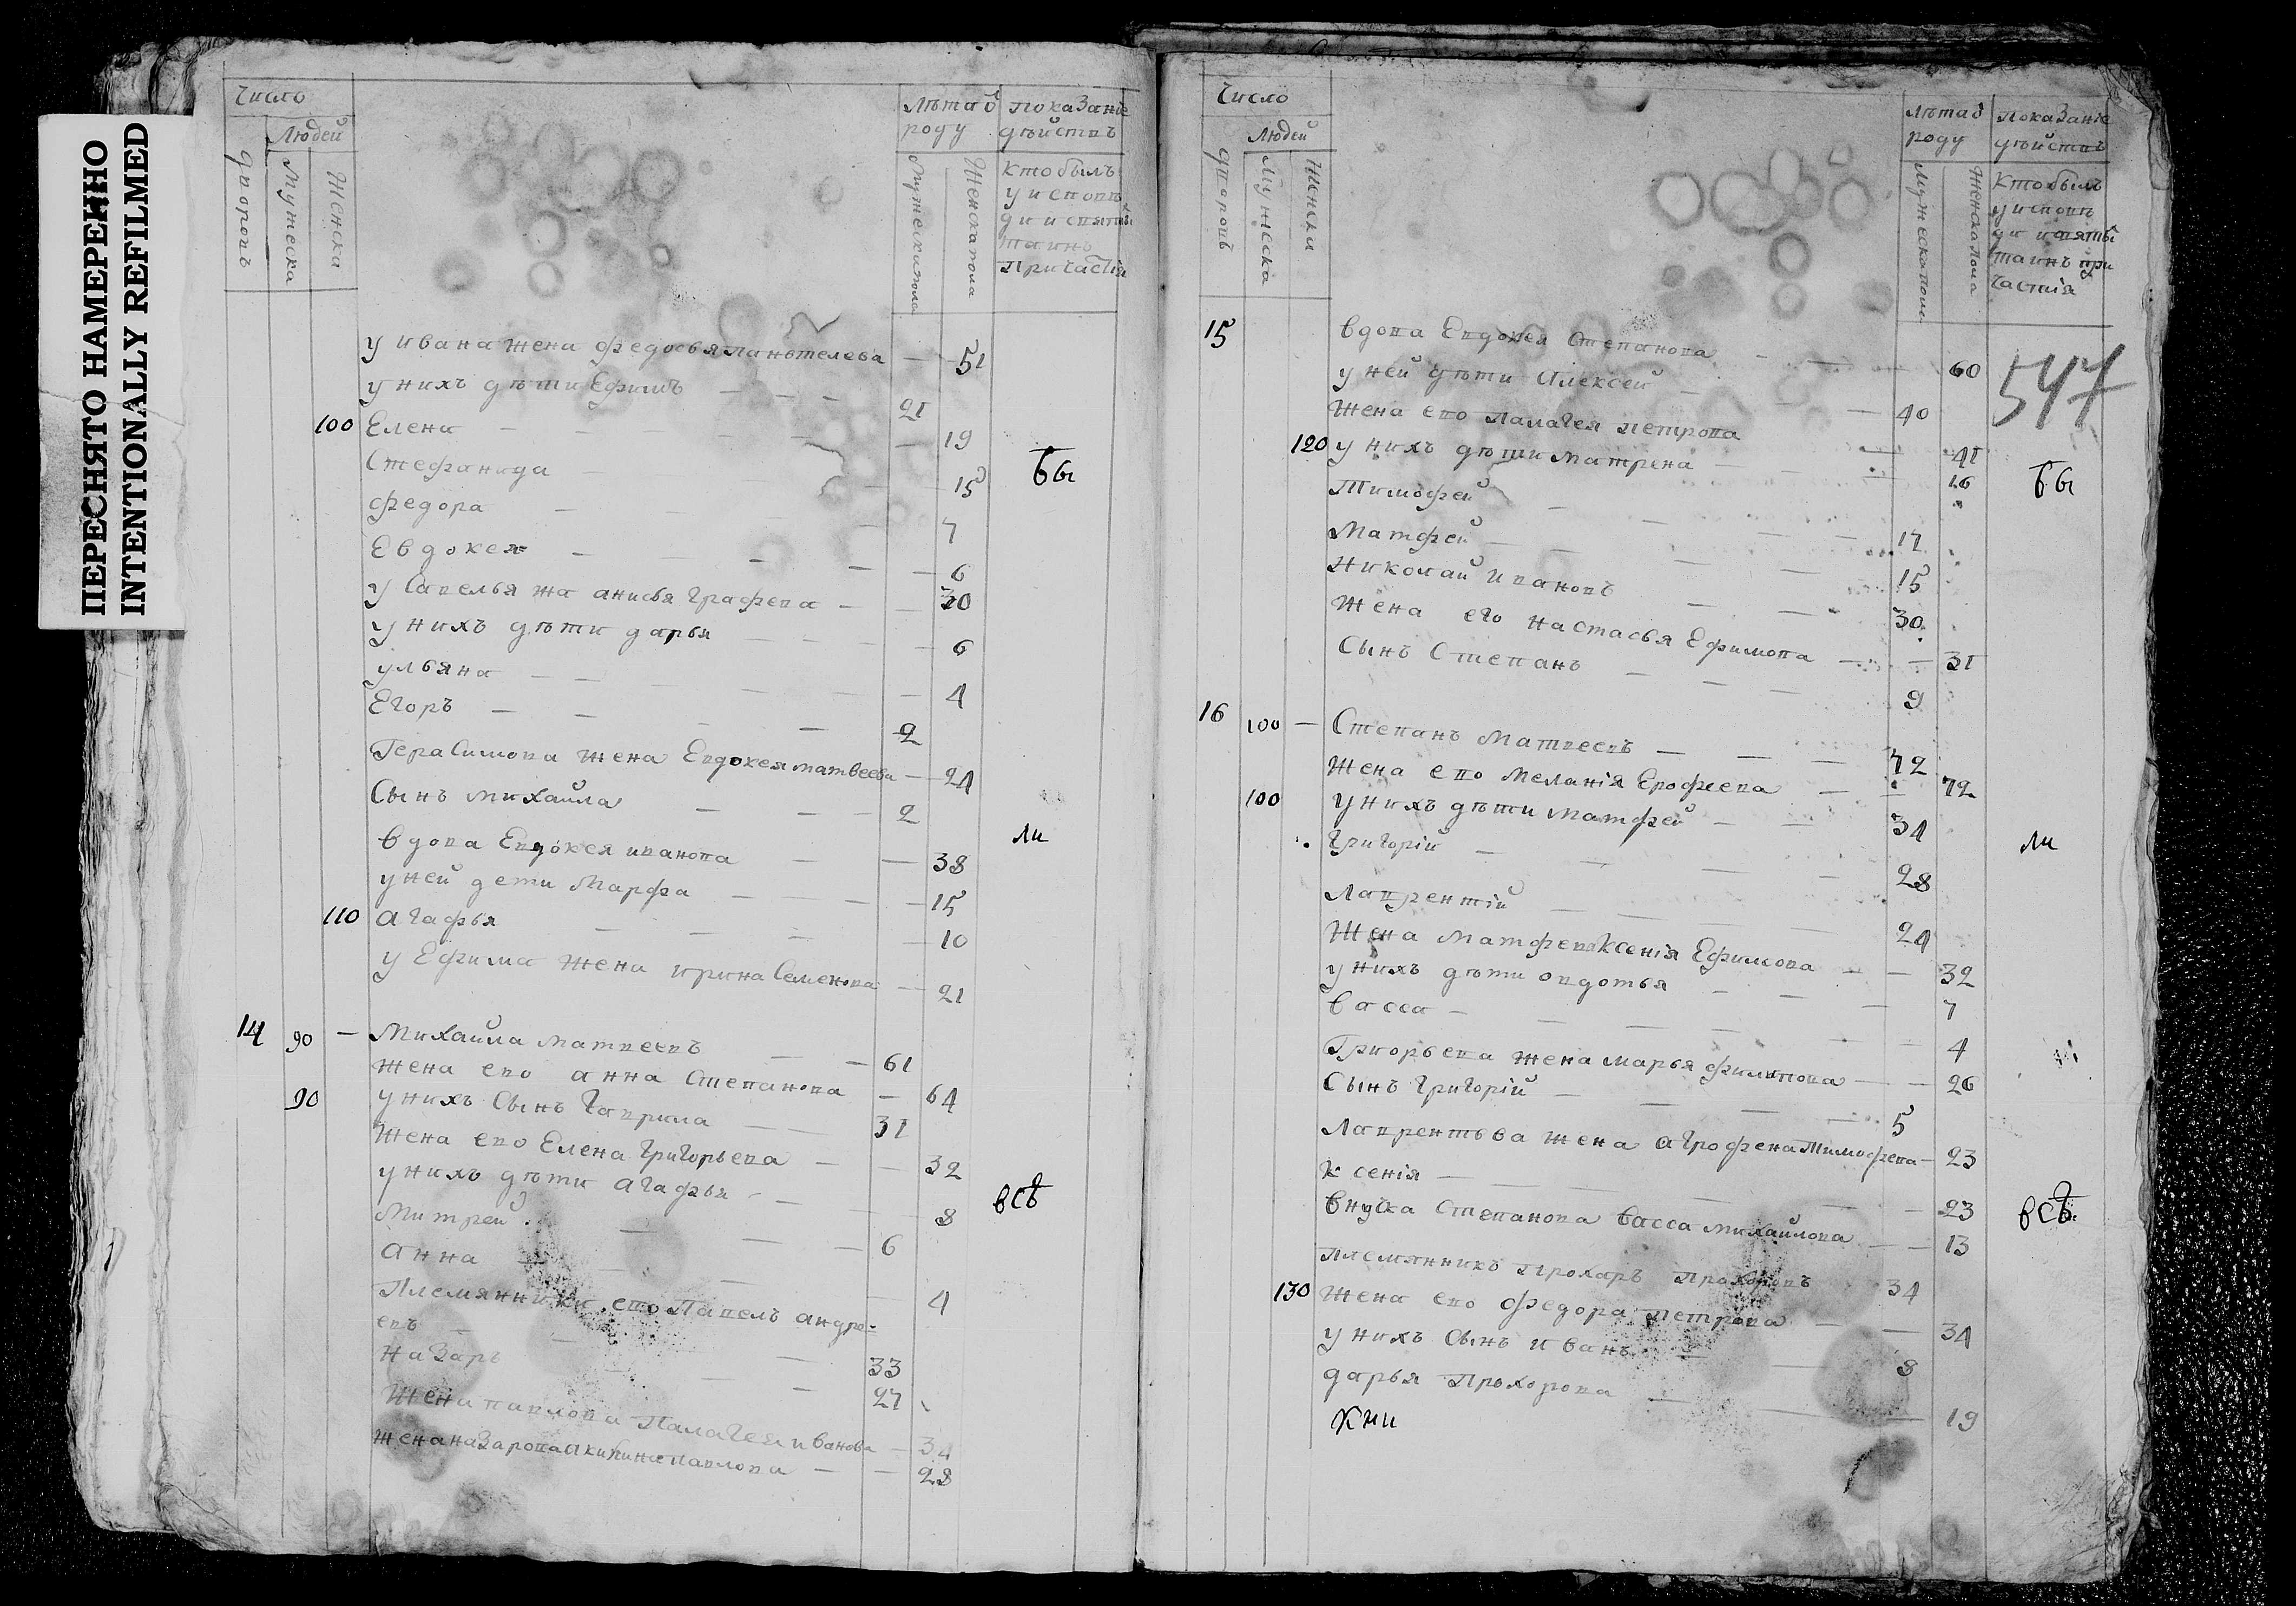 ПЕРЕСНЯТО НАМЕРЕННО
INTENTIONALLY REFILMED
Число
Людей
дворовъ
Мужеска
Женска
Лѣтаѿ роду
Мужеска пола
Женска пола
показаніе дѣйствъ
кто былъ
у исповѣ
ди и святы
таинъ
Причастія
у ивана жена федосья панътелева — 51
у нихъ дѣти Ефимъ — 21
100 Елена — 19
Стефанида — 15
федора — 7
Евдокея — 6
у Савелья жа анисья Графева — 30
у нихъ дѣти дарья — 6
ульяна — 4
Егоръ — 2
Герасимова жена Евдокея матвеева — 24
Сынъ михайла — 2
вдова Евдокея иванова — 38
у ней дети Марфа — 15
110 агафья — 10
у Ефима жена ирина Семенова — 21
14 90 — Михайла матвеевъ — 61
жена ево анна Степанова — 64
90 у нихъ Сынъ гаврила — 31
Жена ево Елена григорьева — 32
у нихъ дѣти агафья — 8
Митрей — 6
анна — 4
Племянники ево Павелъ андре-
евъ — 33
назаръ — 27
Жена павлова Палагея иванова — 34
жена назарова акилина павлова — 28
бы
ли
всѣ
Число
Людей
дворовъ
Мужеска
Женска
лѣтаѿ роду
Мужеска пола
Женска пола
показаніе дѣйствъ
Кто былъ
у исповѣ
ди и святы
таинъ при
частія
547
15 вдова Евдокея Степанова — 60
у ней дѣти Алексей — 40
Жена ево палагея петрова — 41
120 у нихъ дѣти матрена — 16
Тимофей — 17
Матфей — 15
Николай ивановъ — 30
Жена его настасья Ефимова — 31
Сынъ Степанъ — 9
16 100 — Степанъ матвеевъ — 72
Жена ево меланія Ерофеева — 72
100 у нихъ дѣти матфей — 34
григорій — 28
лаврентій — 24
Жена матфева Ксенія Ефимова — 32
у нихъ дѣти овдотья — 7
васса — 4
Григорьева жена марья филипова — 26
Сынъ григорій — 5
лаврентьва жена агрофена Тимофеева — 23
Ксенія — 23
внука Степанова васса михайлова — 13
племянникъ прохаръ прохоровъ 34
130 Жена ево федора петрова — 34
у нихъ Сынъ иванъ — 8
дарья прохорова — 19
бы
ли
всѣ